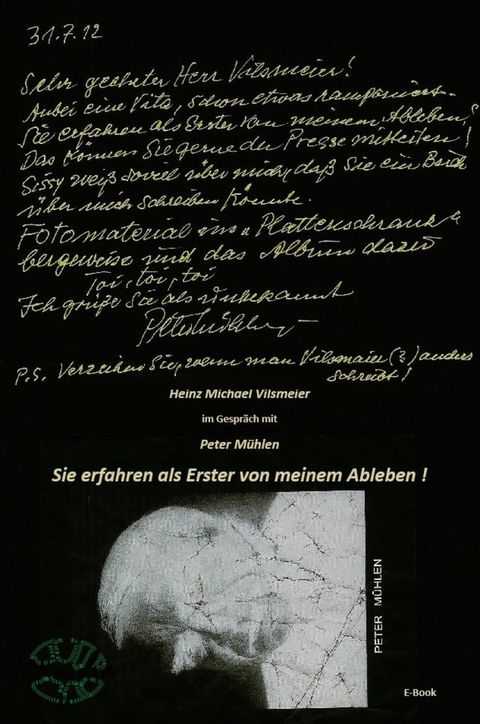 31.7.12
Sehr geehrter Herr Vilsmeier!
Anbei eine Vita, schon etwas ramponiert.
Sie erfahren als Erster von meinem Ableben!
Das können Sie gerne der Presse mitteilen!
Sissy weiß soviel über mich, daß Sie ein Buch
über mich schreiben könnte.
Fotomaterial im "Plattenschrank"
bergeweise und das Album dazu
Toi, toi, toi
Ich grüße Sie als unbekannt
P.S. Verzeihen Sie, wenn man Vilsmaier (?) anders
schreibt!
Heinz Michael Vilsmeier
im Gespräch mit
Peter Mühlen
Sie erfahren als Erster von meinem Ableben !
PETER MÜHLEN
E-Book